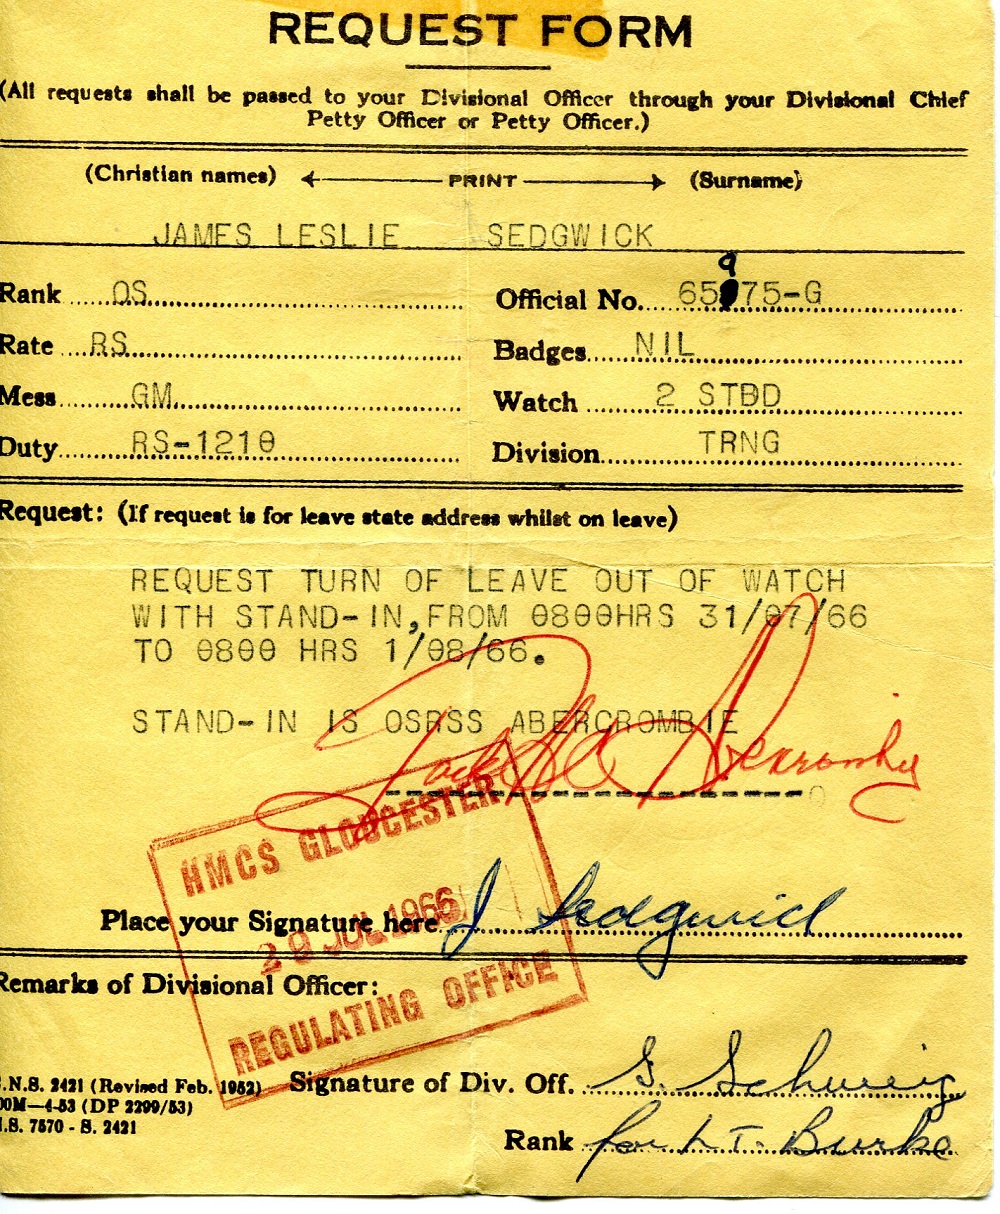 REQUEST FORM
(All requests shall be passed to your Divisional Officer through your Divisional Chief
Petty Officer or Petty Officer.)
(Christian names) PRINT (Surname)
JAMES LESLIE SEDGWICK
Rank OS Official No. 65975-G
Rate RS Badges NIL
Mess GM Watch 2 STBD
Duty RS-1210 Division TRNG
Request: (If request is for leave state address whilst on leave)
REQUEST TURN OF LEAVE OUT OF WATCH
WITH STAND-IN, FROM 0800HRS 31/07/66
TO 0800 HRS 1/08/66.
STAND-IN IS OSRSS ABERCROMBIE
HMCS GLOUCESTER
Place your Signature here J Sedgwick
29 JUL 1966
Remarks of Divisional Officer:
REGULATING OFFICE
.N.S. 2421 (Revised Feb. 1952) Signature of Div. Off. S. Schweig
00M—4-53 (DP 2299/53)
.S. 7570 - S. 2421
Rank for LT. Burke